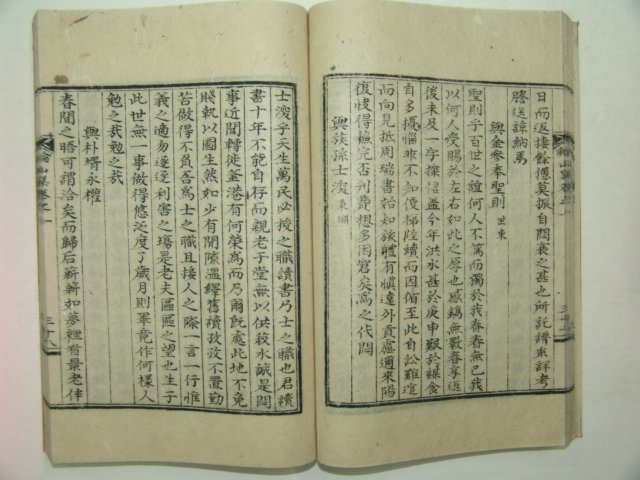 日而返棲餘憊莫振自悶衰之甚也所託譜乘詳考
謄送諒納焉
與金參奉聖則 世東
聖則乎百世之誼何人不篤而獨於我眷眷無已我
以何人受賜於左右如此之厚也感鐫無斁春享返
後未及一字探信益今年洪水甚於庚申艱於謀食
自多擾惱非不知傻悌陸續而因循至此自訟難逭
而向見抵周瑞書始知旅體有愼遠外貢慮邇來陽
復快得
否刑費想多困窘矣爲之代悶
與族孫士浚 東
士浚乎天生萬民必授之職讀書乃士之職也君讀
書十年不能自存而親老子堂無以供菽水誠是悶
事近聞轉徙釜港有何榮爲而乃爾旣處此地不免
賤執以圖生然如少有閒隙溫繹舊讀孜孜不置勤
苦做得不負吾爲士之職且接人之際一言一行惟
義之適勿逐逐利害之場是老夫區區之望也生子
此世無一事做得悠泛度了歲月則畢竟作何樣人
勉之哉勉之哉
與朴壻永權
春間之晤可謂洽矣而歸后蘄蘄如夢裡看景老伴
山集卷之一
三十八